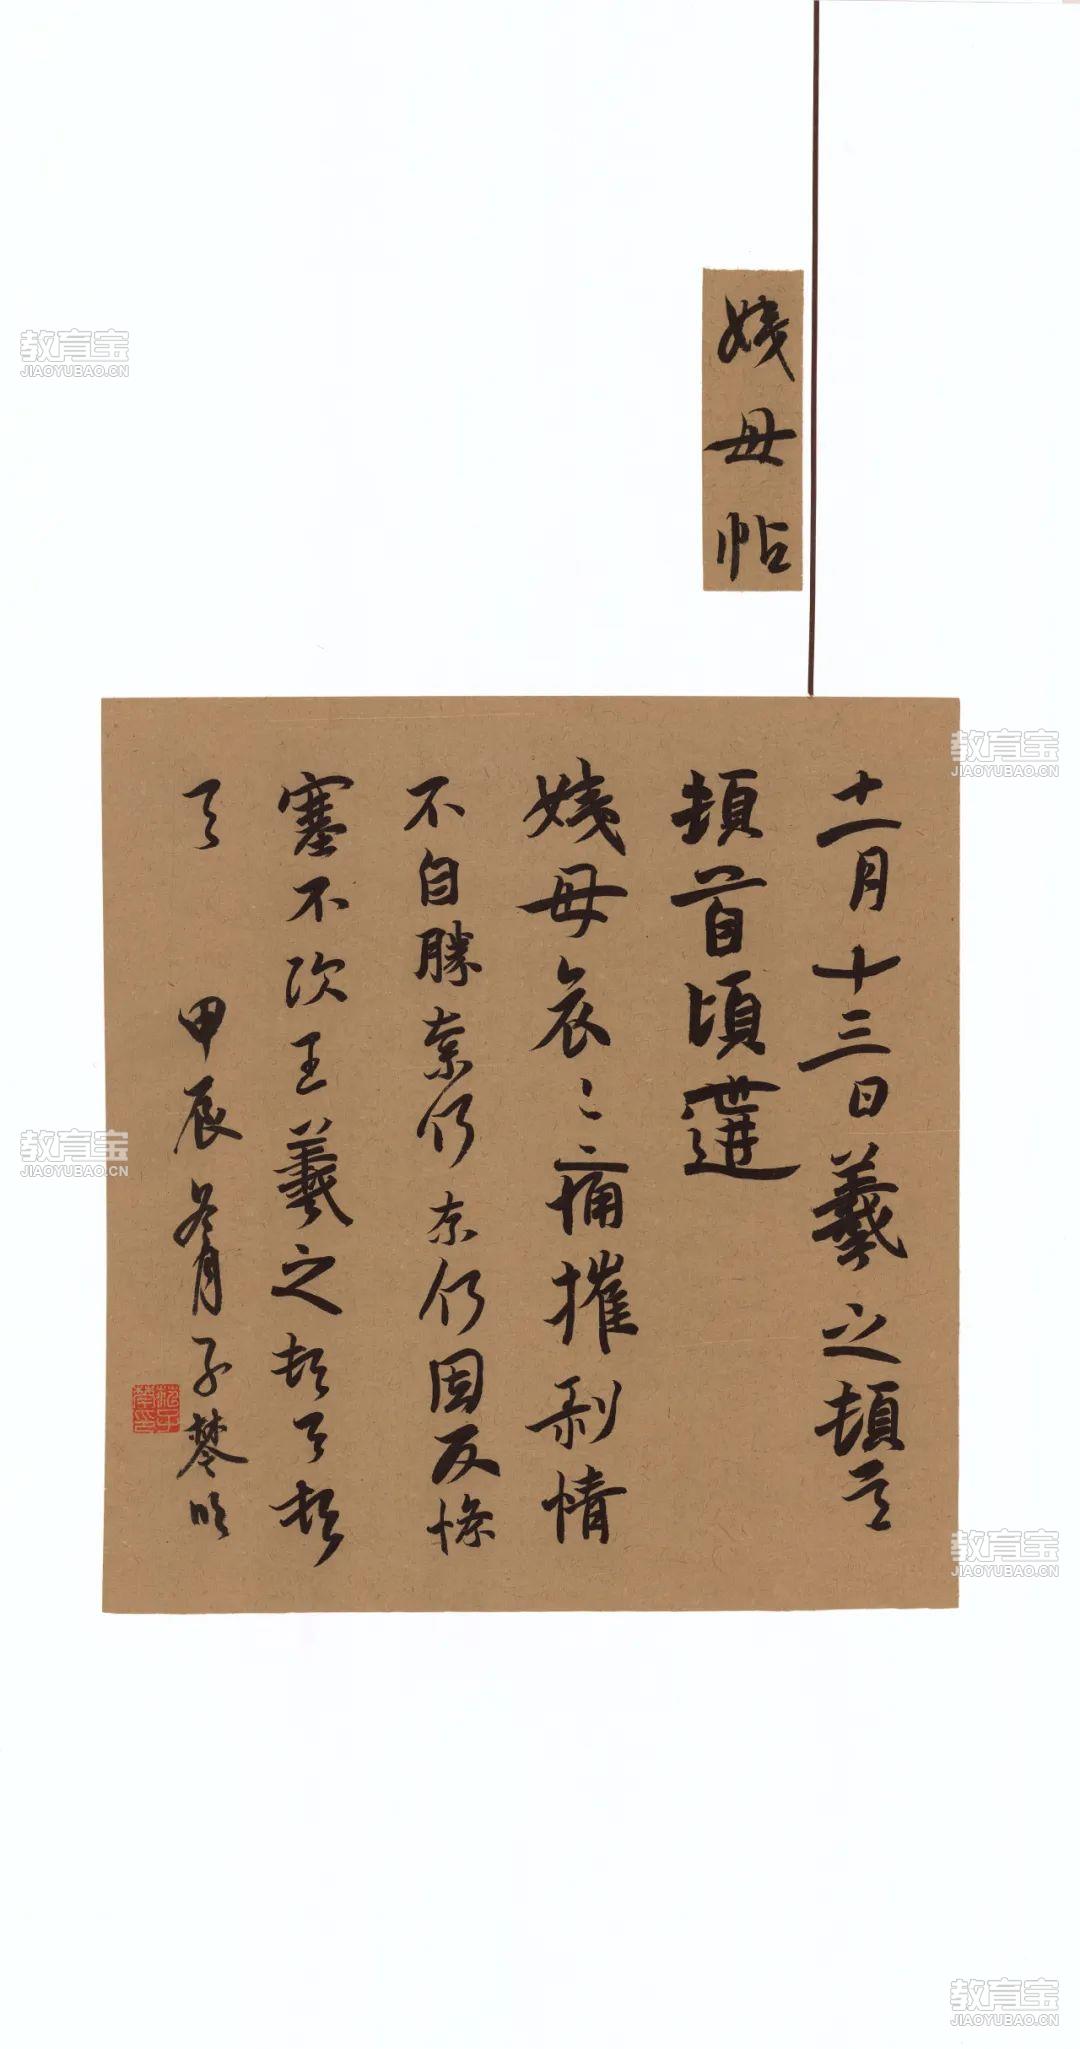 姨母帖
十一月十三日羲之頓首
頓首頃遘
姨母哀〻痛摧剥情
不自勝奈何奈何因反慘
塞不次王羲之頓首頓
首 甲辰冬月子琴臨
教育宝
JIAOYUBAO.CN
教育宝
JIAOYUBAO.CN
教育宝
JIAOYUBAO.CN
教育宝
JIAOYUBAO.CN
教育宝
JIAOYUBAO.CN